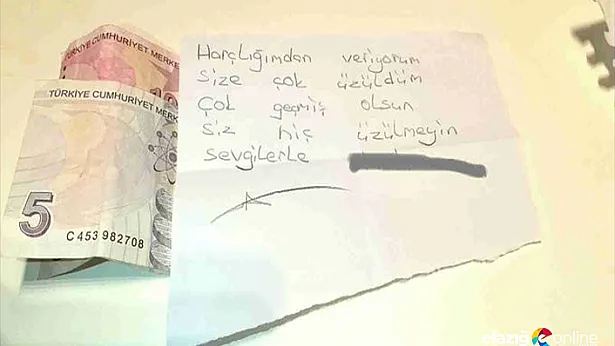 TÜRKİYE CUMHURİYET MERKE
TÜRKİYE CUMHURİYET MERKE
5
C453982708
Harçlığımdan veriyorum
Size çok üzüldüm
Çok geçmiş olsun
Siz hiç üzülmeyin
Sevgilerle
elazığ online